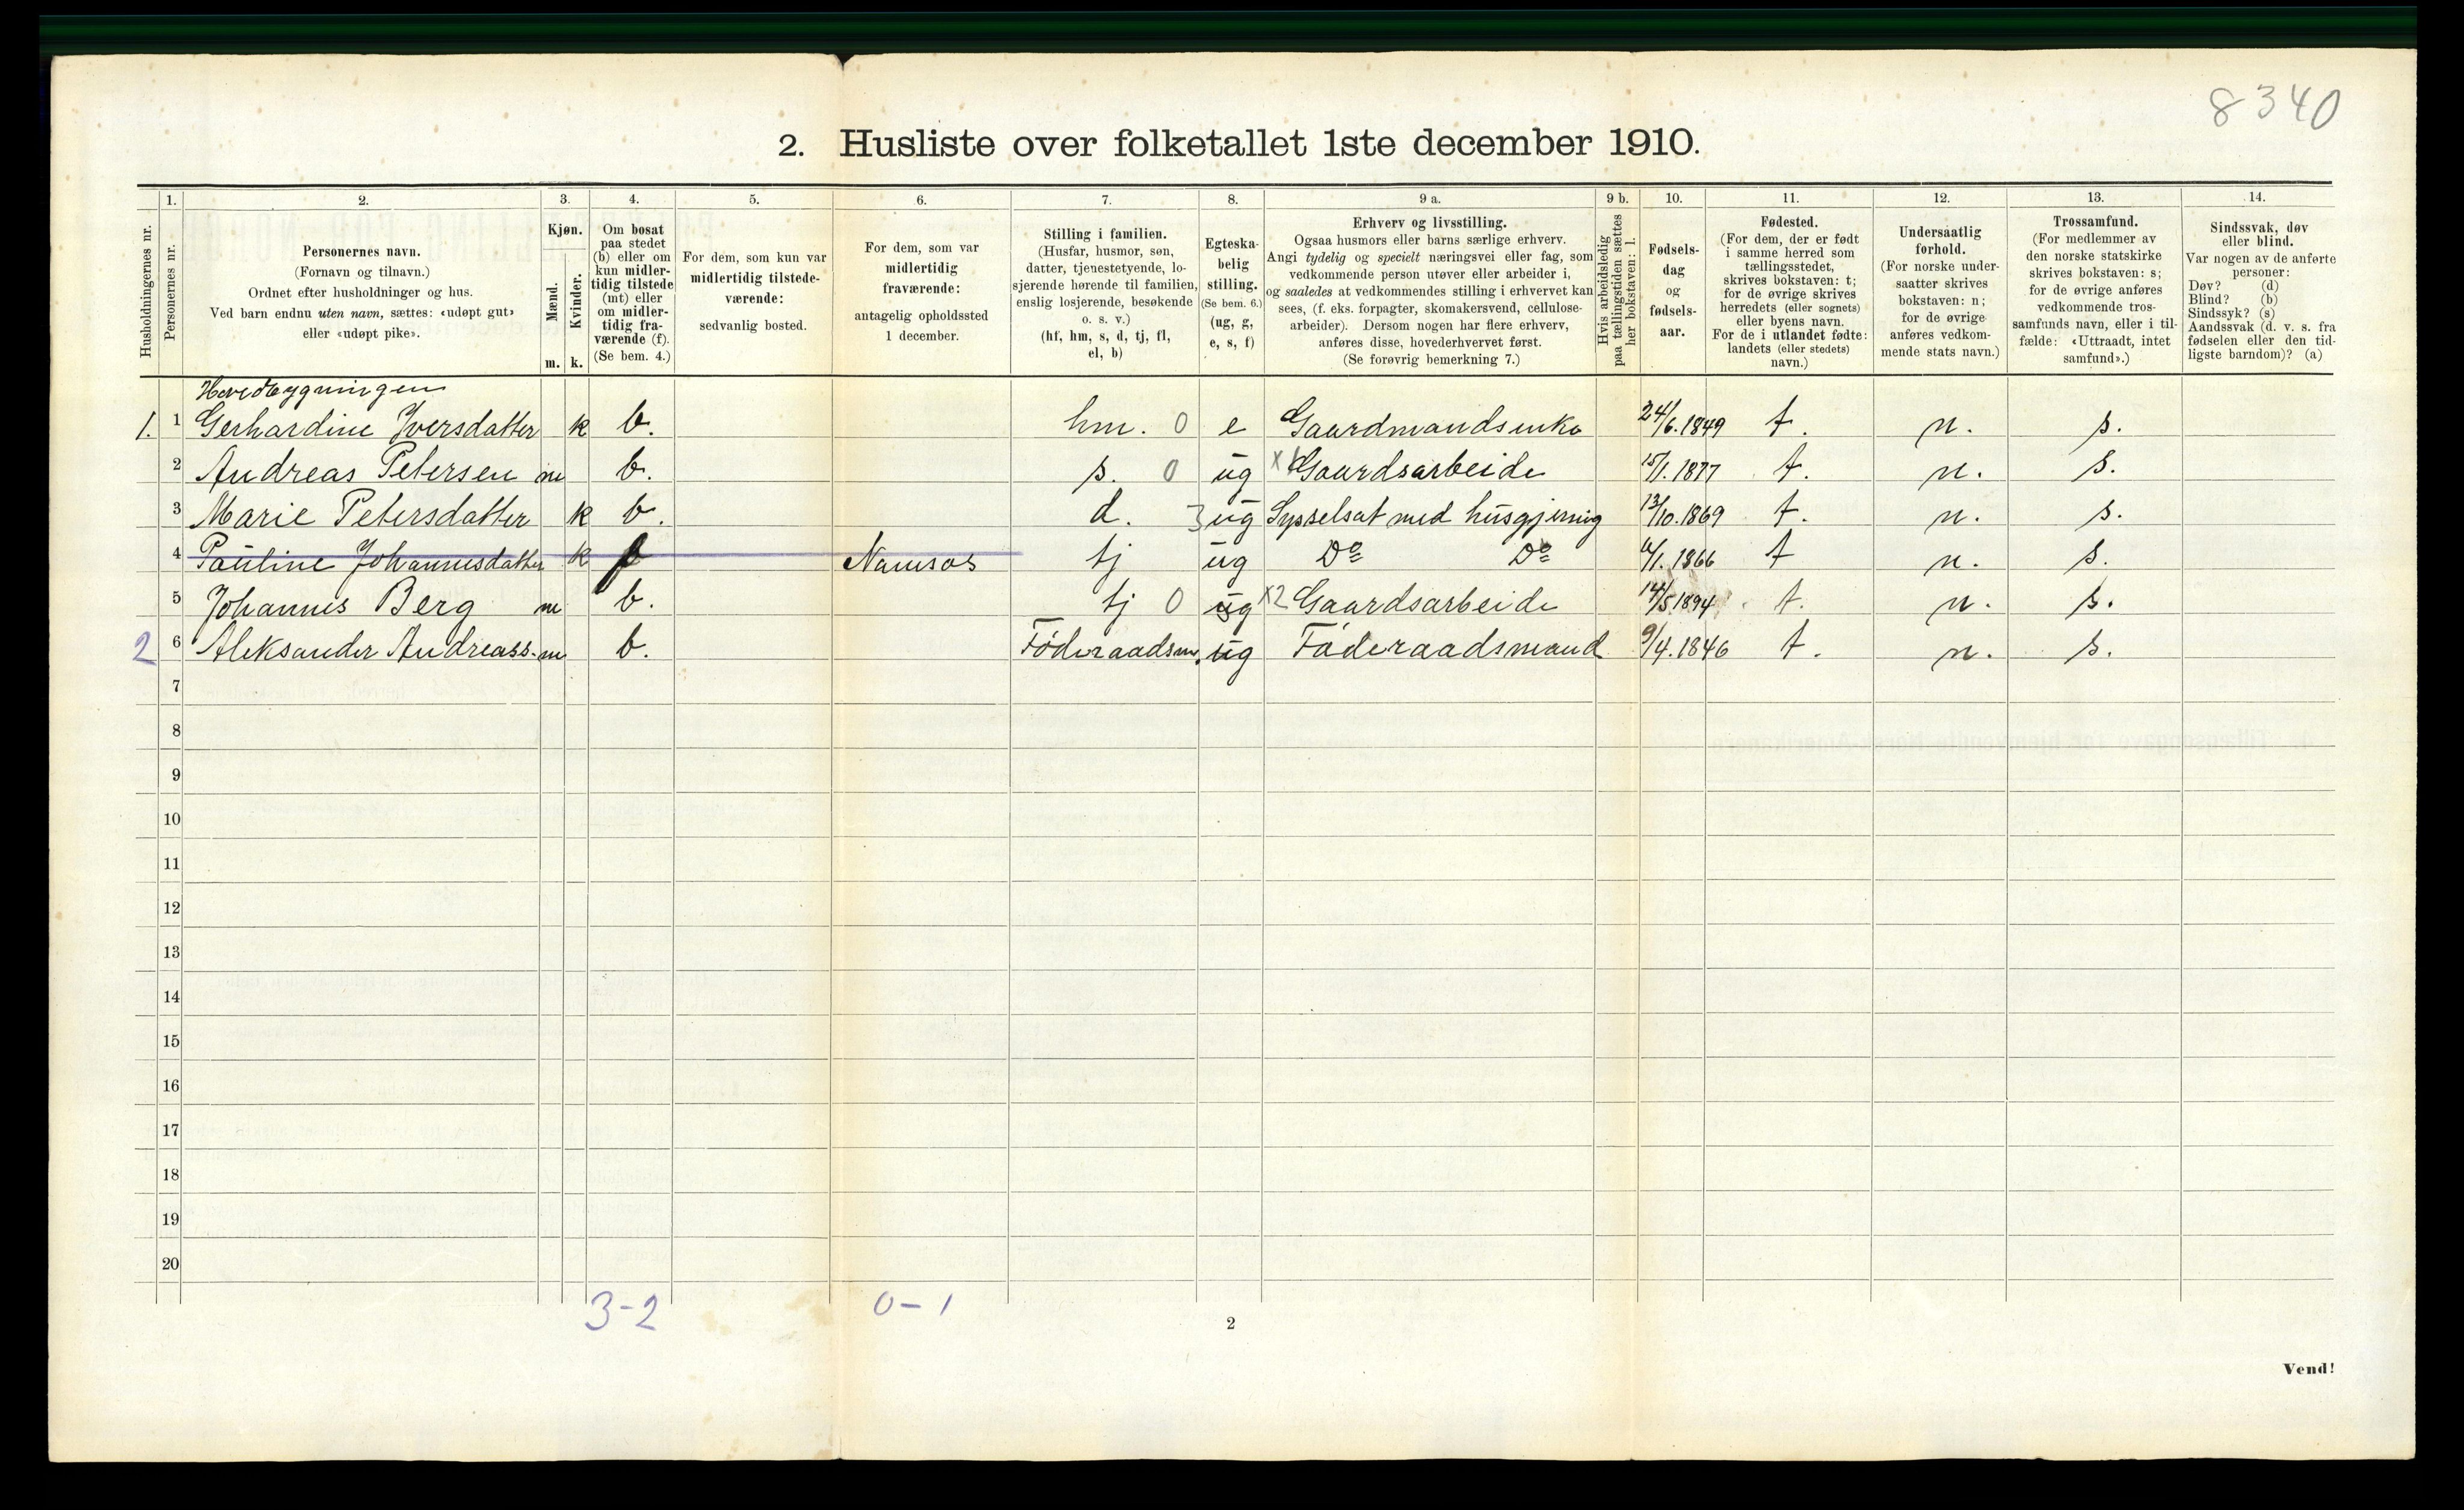 8340
2. Husliste over folketallet 1ste december 1910.
Husholdningernes nr.
1.
Personernes nr.
2.
Personernes navn.
(Fornavn og tilnavn.)
Ordnet efter husholdninger og hus.
Ved barn endnu uten navn, sættes: «udøpt gut»
eller «udøpt pike».
3.
Kjøn.
Mænd.
Kvinder.
m. k.
4.
Om bosat
paa stedet
(b) eller om
kun midler-
tidig tilstede
(mt) eller
om midler-
tidig fra-
værende (f).
(Se bem. 4.)
5.
For dem, som kun var
midlertidig tilstede-
værende:
sedvanlig bosted.
6.
For dem, som var
midlertidig
fraværende:
antagelig opholdssted
1 december.
7.
Stilling i familien.
(Husfar, husmor, søn,
datter, tjenestetyende, lo-
sjerende hørende til familien,
enslig losjerende, besøkende
o. s. v.)
(hf, hm, s, d, tj, fl,
el, b)
8.
Egteska-
belig
stilling.
(Se bem. 6.)
(ug, g,
e, s, f)
9 a.
Erhverv og livsstilling.
Ogsaa husmors eller barns særlige erhverv.
Angi tydelig og specielt næringsvei eller fag, som
vedkommende person utøver eller arbeider i,
og saaledes at vedkommendes stilling i erhvervet kan
sees, (f. eks. forpagter, skomakersvend, cellulose-
arbeider). Dersom nogen har flere erhverv,
anføres disse, hovederhvervet først.
(Se forøvrig bemerkning 7.)
9 b.
Hvis arbeidsledig
paa tællingstiden sættes
her bokstaven: l.
10.
Fødsels-
dag
og
fødsels-
aar.
11.
Fødested.
(For dem, der er født
i samme herred som
tællingsstedet,
skrives bokstaven: t;
for de øvrige skrives
herredets (eller sognets)
eller byens navn.
For de i utlandet fødte:
landets (eller stedets)
navn.)
12.
Undersaatlig
forhold.
(For norske under-
saatter skrives
bokstaven: n;
for de øvrige
anføres vedkom-
mende stats navn.)
13.
Trossamfund.
(For medlemmer av
den norske statskirke
skrives bokstaven: s;
for de øvrige anføres
vedkommende tros-
samfunds navn, eller i til-
fælde: «Uttraadt, intet
samfund».)
14.
Sindssvak, døv
eller blind.
Var nogen av de anførte
personer:
Døv? (d)
Blind? (b)
Sindssyk? (s)
Aandssvak (d. v. s. fra
fødselen eller den tid-
ligste barndom)? (a)
Hovedbygningen
1. 1 Gerhardine Iversdatter k b. hm. 0 e Gaardmandsenke 24/6.1849 t. n. s.
2 Andreas Petersen m b. s. 0 ug Gaardsarbeide 15/1.1877 t. n. s.
3 Marie Petersdatter k b. d. 3 ug Sysselsat med husgjerning 13/10.1869 t. n. s.
4 Pauline Johannesdatter k f Namsos tj ug Do Do 1866 t n. s.
5 Johannes Berg m b. tj 0 ug X2 Gaardsarbeide 14/5.1894 t. n. s.
2 6 Aleksander Andreass. m b. Föderaadsm. ug Föderaadsmand 9/4.1846 t. n. s.
7
8
9
10
11
12
13
14
15
16
17
18
19
20
3-2 0-1
2
Vend!